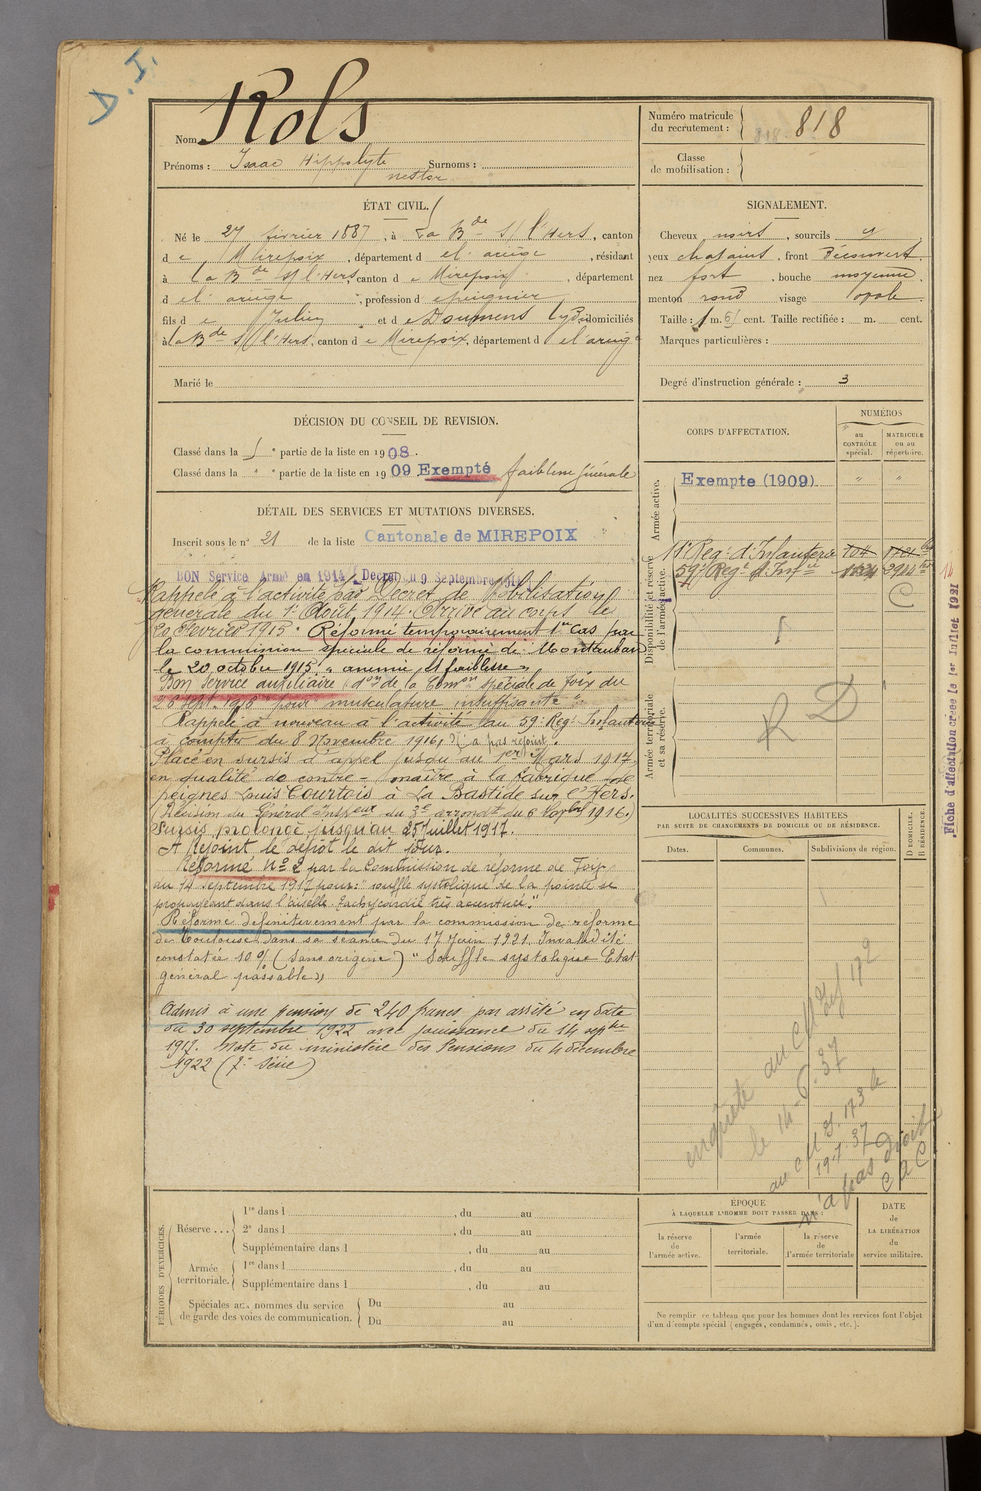 D. I.
Nom Rols
Prénoms : Isaac Hippolyte Surnoms :
nestor
Numéro matricule
du recrutement : 818
Classe
de mobilisation :
ÉTAT CIVIL.
Né le 27 février 1887, à La Bde S/ l'Hers, canton
de Mirepoix, département d el' ariège, résidant
à La Bde S/ l'Hers, canton de Mirepoix, département
d el' ariège, profession d epeignier
fils d e Julien et d e Doumens domiciliés
à La Bde S/ l'Hers, canton d e Mirepoix, département d el' arieg
Marié le
SIGNALEMENT.
Cheveux noirs, sourcils y
yeux chatains, front Découvert.
nez fort, bouche moyenne
menton rond visage ovale.
Taille : 1 m. 61 cent. Taille rectifiée : m. cent.
Marques particulières :
Degré d'instruction générale : 3
DÉCISION DU CONSEIL DE REVISION.
Classé dans la 1e partie de la liste en 1908.
Classé dans la " e partie de la liste en 1909 Exempté faiblesse Générale
DÉTAIL DES SERVICES ET MUTATIONS DIVERSES.
Inscrit sous le n° 21 de la liste Cantonale de MIREPOIX
BON Service Armé en 1914 (Decret du 9 Septembre 1914
Rappelé à l'activité par Décret de Mobilisation
générale du 1er Août 1914. Arrivé au corps le
20 février 1915. Réformé temporairement 1er Cas par
la commission spéciale de réforme de Montauban
le 20 octobre 1915 "anemie et faiblesse"
Bon Service auxiliaire don de la Comon spéciale de Foix du
26 Sept. 1916 "pour musculature insuffisante".
Rappelé à nouveau à l'activité au 59e Reg. Infanterie
à compter du 8 Novembre 1916, N'a pas rejoint.
Placé en sursis d'appel jusqu'au 1er Mars 1917
en qualité de contre-maitre à la fabrique de
peignes Louis Courtois à La Bastide sur l'Hers.
(Décision du Général Inspeur du 3e arrondt du 6 Novbre 1916.)
Sursis prolongé jusqu'au 25 Juillet 1917.
A Rejoint le dépôt le dit jour.
Réformé N° 2 par la Commission de réforme de Foix
du 14 septembre 1917 pour: "souffle systolique de la pointe se
propageant dans l'aiselle. Tachycardie très accentuée."
Réformé définitivement par la commission de réforme
de Toulouse dans sa séance du 17 Juin 1921. Invalidité
constatée 10% (Sans origine) "Souffle systolique Etat
général passable"
Admis à une pension de 240 francs par arrêté en date
du 30 septembre 1922 avec jouissance du 14 septbre
1917. Note du ministère des Pensions du 4 décembre
1922 (7e Série)
CORPS D'AFFECTATION.
NUMÉROS
au
CONTRÔLE
spécial.
MATRICULE
ou au
répertoire.
Armée active.
Exempte (1909)
" "
Disponibilité et réserve
de l'armée active.
11e Reg. d'Infanterie
59e Regt d'Infie
C
Armée territoriale
et sa réserve.
R D
Fiche d'affectation créée le 1er Juillet 1921
LOCALITÉS SUCCESSIVES HABITÉES
PAR SUITE DE CHANGEMENTS DE DOMICILE OU DE RÉSIDENCE.
Dates.
Communes.
Subdivisions de région.
D DOMICILE.
R RÉSIDENCE.
enquête au
le 14-6-37
19-7 37
n'a pas droit
C A C
PÉRIODES D'EXERCICES.
Réserve ...
1re dans l , du au
2e dans l , du au
Supplémentaire dans l , du au
Armée
territoriale.
1re dans l , du au
Supplémentaire dans l , du au
Spéciales aux hommes du service
de garde des voies de communication.
Du au
Du au
ÉPOQUE
À LAQUELLE L'HOMME DOIT PASSER DANS :
la réserve
de
l'armée active.
l'armée
territoriale.
la réserve
de
l'armée territoriale
DATE
de
LA LIBÉRATION
du
service militaire.
Ne remplir ce tableau que pour les hommes dont les services font l'objet
d'un décompte spécial (engagés, condamnés, omis, etc.).